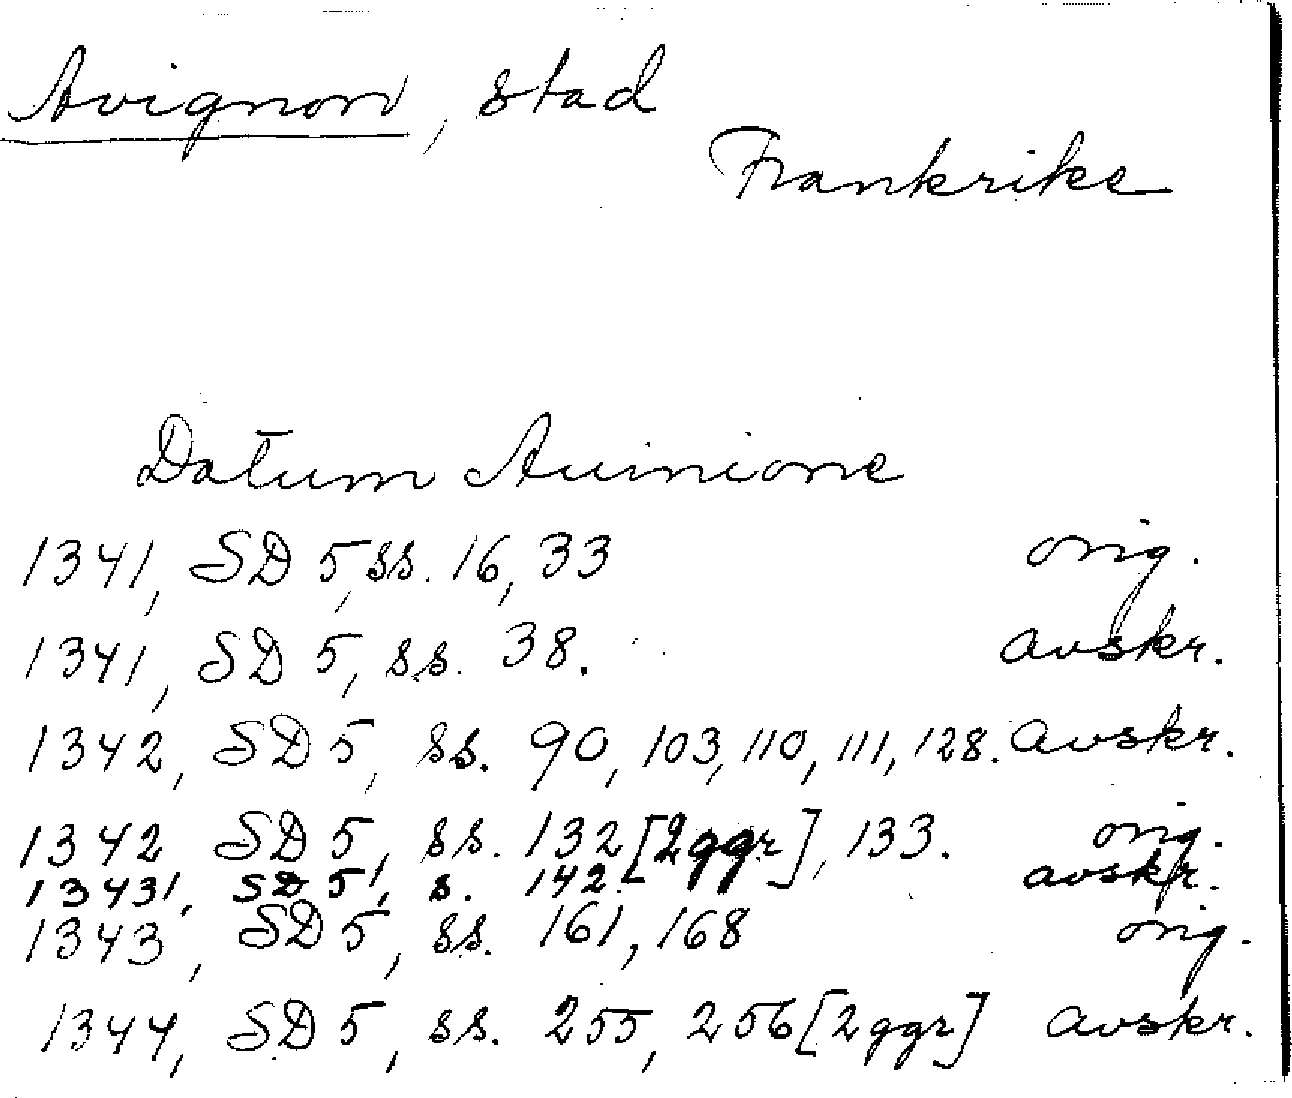 Avignon, stad
Frankrike
Datum Auinione
1341, SD 5, ss. 16, 33 orig.
1341, SD 5, ss. 38. avskr.
1342, SD 5, ss. 90, 103, 110, 111, 128. avskr.
1342 SD 5, ss. 132 [2ggr], 133. orig.
1343, SD 5, s. 142. avskr.
1343, SD 5, ss. 161, 168 orig.
1344, SD 5, ss. 255, 256 [2ggr] avskr.